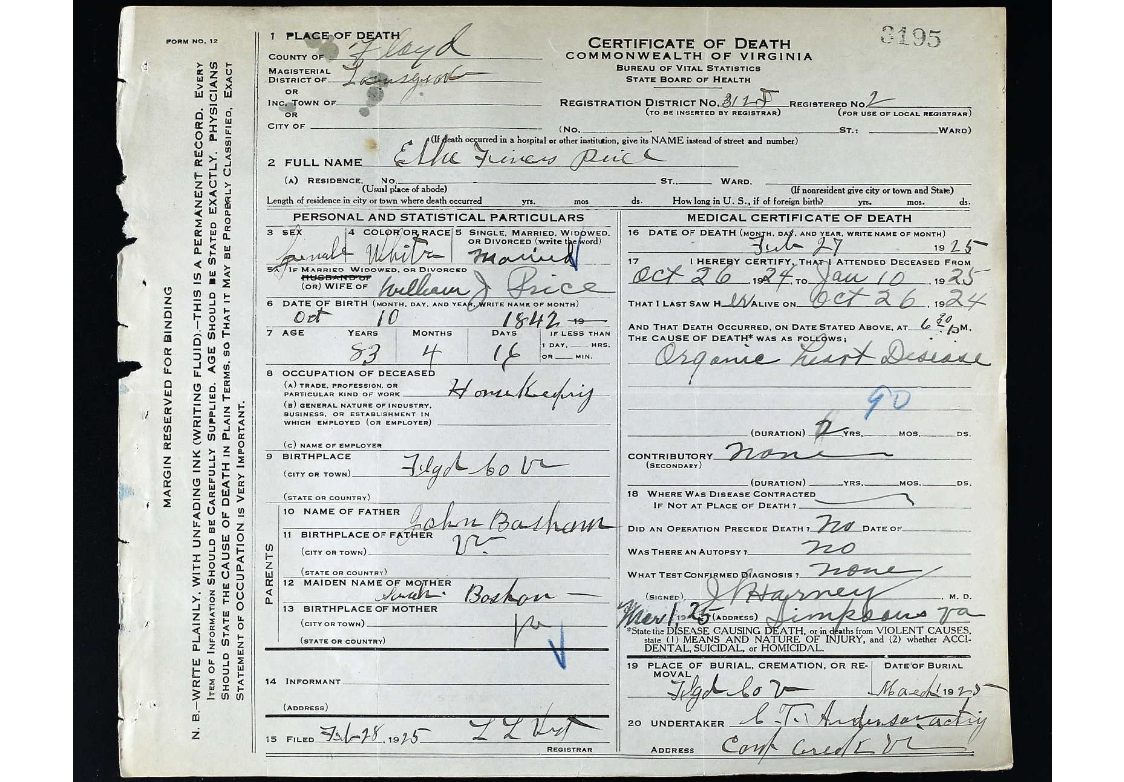 FORM NO. 12
3195
MARGIN RESERVED FOR BINDING
N. B.—WRITE PLAINLY, WITH UNFADING INK (WRITING FLUID).—THIS IS A PERMANENT RECORD. EVERY
ITEM OF INFORMATION SHOULD BE CAREFULLY SUPPLIED. AGE SHOULD BE STATED EXACTLY. PHYSICIANS
SHOULD STATE THE CAUSE OF DEATH IN PLAIN TERMS, SO THAT IT MAY BE PROPERLY CLASSIFIED. EXACT
STATEMENT OF OCCUPATION IS VERY IMPORTANT.
1 PLACE OF DEATH
COUNTY OF Floyd
MAGISTERIAL
DISTRICT OF
OR
INC. TOWN OF
OR
CITY OF
CERTIFICATE OF DEATH
COMMONWEALTH OF VIRGINIA
BUREAU OF VITAL STATISTICS
STATE BOARD OF HEALTH
REGISTRATION DISTRICT NO. REGISTERED NO. 2
(TO BE INSERTED BY REGISTRAR) (FOR USE OF LOCAL REGISTRAR)
(NO. ST.: WARD)
(If death occurred in a hospital or other institution, give its NAME instead of street and number)
2 FULL NAME Price
(A) RESIDENCE. NO. ST., WARD.
(Usual place of abode) (If nonresident give city or town and State)
Length of residence in city or town where death occurred yrs. mos ds. How long in U. S., if of foreign birth? yrs. mos. ds.
PERSONAL AND STATISTICAL PARTICULARS
3 SEX 4 COLOR OR RACE 5 SINGLE, MARRIED, WIDOWED,
OR DIVORCED (write the word)
female White Married
5A IF MARRIED WIDOWED, OR DIVORCED
HUSBAND OF
(OR) WIFE OF William J Price
6 DATE OF BIRTH (MONTH, DAY, AND YEAR, WRITE NAME OF MONTH)
Oct 10 1842 19
7 AGE YEARS MONTHS DAYS IF LESS THAN
1 DAY, HRS.
OR MIN.
83 4 16
8 OCCUPATION OF DECEASED
(A) TRADE, PROFESSION, OR
PARTICULAR KIND OF WORK HouseKeeping
(B) GENERAL NATURE OF INDUSTRY,
BUSINESS, OR ESTABLISHMENT IN
WHICH EMPLOYED (OR EMPLOYER)
(C) NAME OF EMPLOYER
9 BIRTHPLACE
(CITY OR TOWN) Floyd Co Va
(STATE OR COUNTRY)
PARENTS
10 NAME OF FATHER John Basham
11 BIRTHPLACE OF FATHER
(CITY OR TOWN) Va
(STATE OR COUNTRY)
12 MAIDEN NAME OF MOTHER
13 BIRTHPLACE OF MOTHER
(CITY OR TOWN)
(STATE OR COUNTRY)
14 INFORMANT
(ADDRESS)
15 FILED Feb 28, 1925
REGISTRAR
MEDICAL CERTIFICATE OF DEATH
16 DATE OF DEATH (MONTH, DAY, AND YEAR, WRITE NAME OF MONTH)
Feb 27 1925
17 I HEREBY CERTIFY, THAT I ATTENDED DECEASED FROM
Oct 26 1924, TO Jan 10, 1925
THAT I LAST SAW H ALIVE ON Oct 26, 1924
AND THAT DEATH OCCURRED, ON DATE STATED ABOVE, AT 6 30 P M.
THE CAUSE OF DEATH* WAS AS FOLLOWS;
Organic heart Disease
90
(DURATION) YRS. MOS. DS.
CONTRIBUTORY none
(SECONDARY)
(DURATION) YRS. MOS. DS.
18 WHERE WAS DISEASE CONTRACTED
IF NOT AT PLACE OF DEATH?
DID AN OPERATION PRECEDE DEATH? No DATE OF
WAS THERE AN AUTOPSY? no
WHAT TEST CONFIRMED DIAGNOSIS? none
(SIGNED) Harney M. D.
Mar 1, 1925 (ADDRESS) Simpsons Va
*State the DISEASE CAUSING DEATH, or in deaths from VIOLENT CAUSES,
state (1) MEANS AND NATURE OF INJURY, and (2) whether ACCI-
DENTAL, SUICIDAL, or HOMICIDAL.
19 PLACE OF BURIAL, CREMATION, OR RE- DATE OF BURIAL
MOVAL
Floyd Co Va March 1 1925
20 UNDERTAKER C. T. Anderson acting
ADDRESS Creek Va